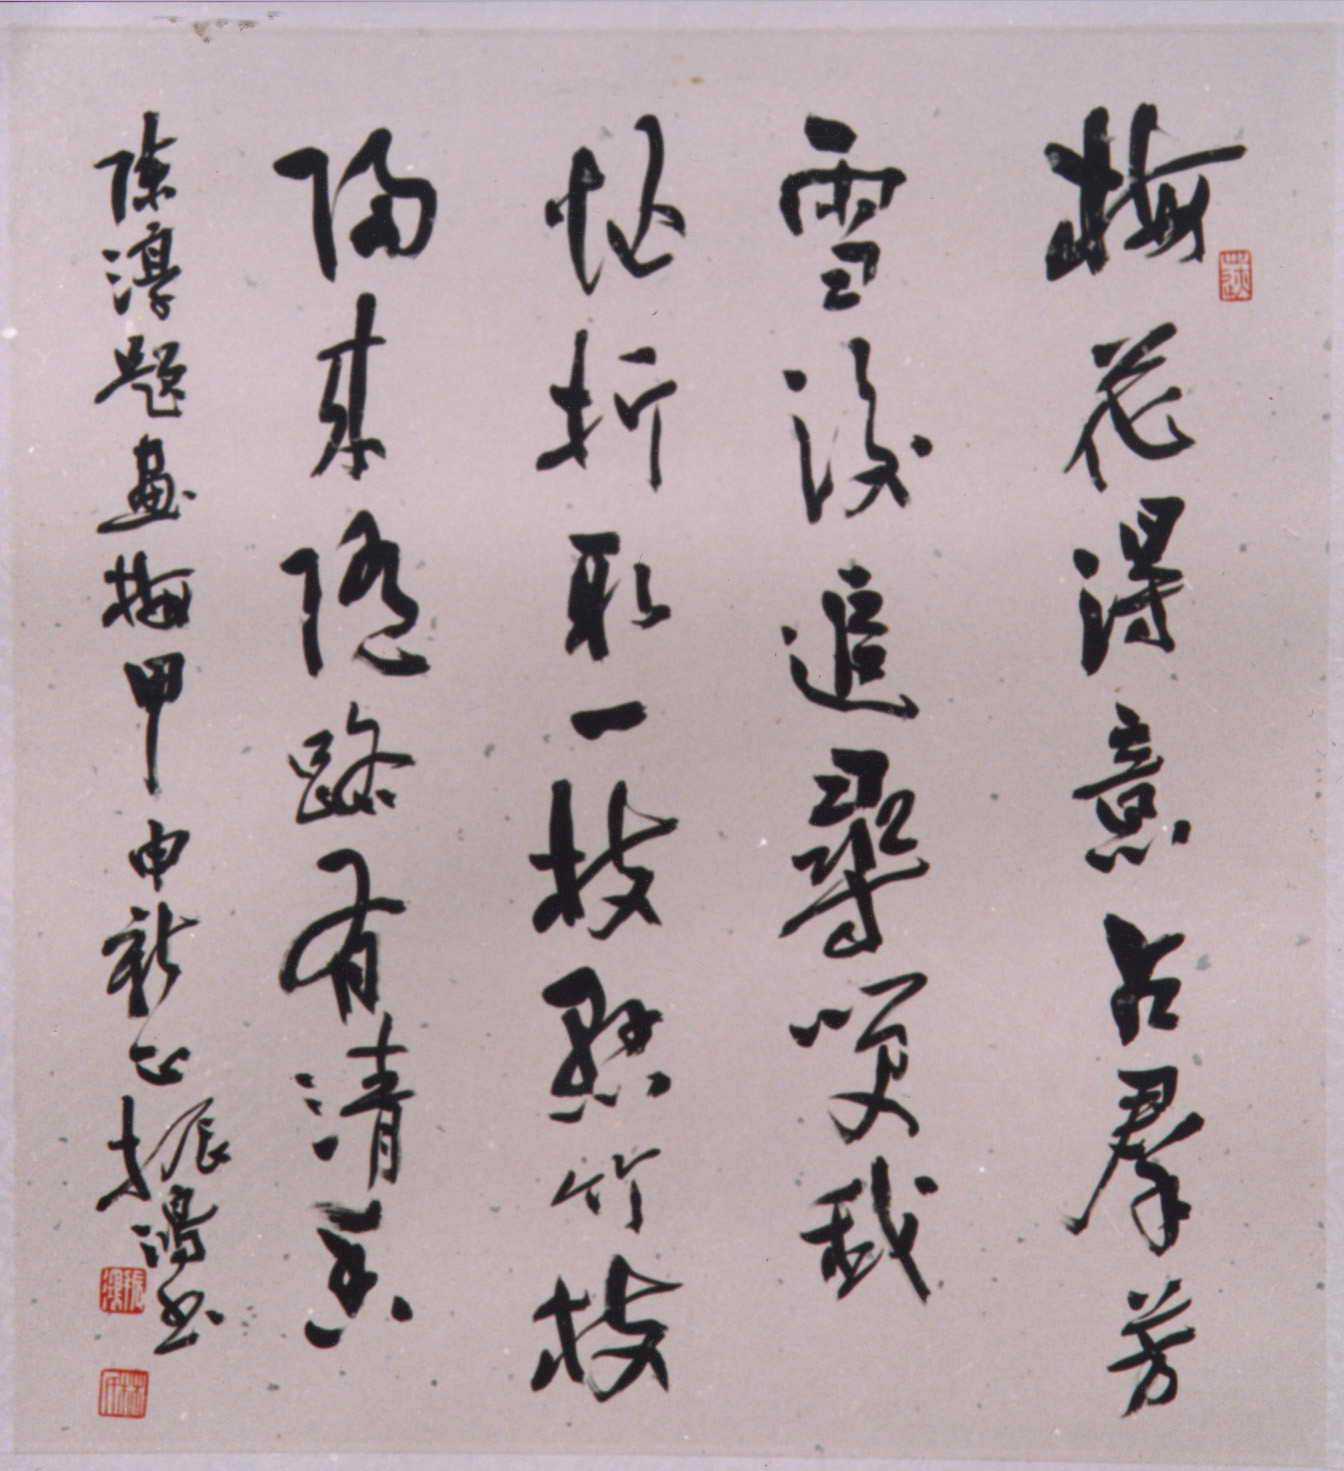 梅花得意占群芳
雪後追尋笑我
忙折取一枝懸竹杖
歸來隨路有清香
陳淳題畫梅甲申新正振鴻書